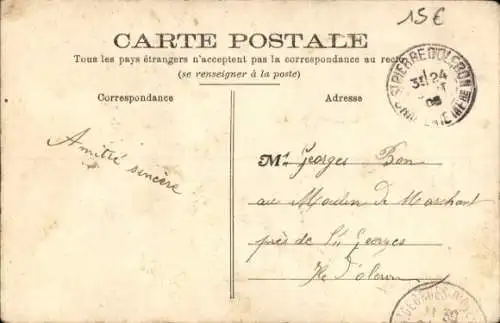 15€
CARTE POSTALE
Tous les pays étrangers n'acceptent pas la correspondance au rec
(se renseigner à la poste)
Correspondance
Adresse
ST PIERRE D'OLERON
24
Amitié sincère
Mr Georges Bon
au Moulin de Marchant
près de St Georges
Ile d'oleron